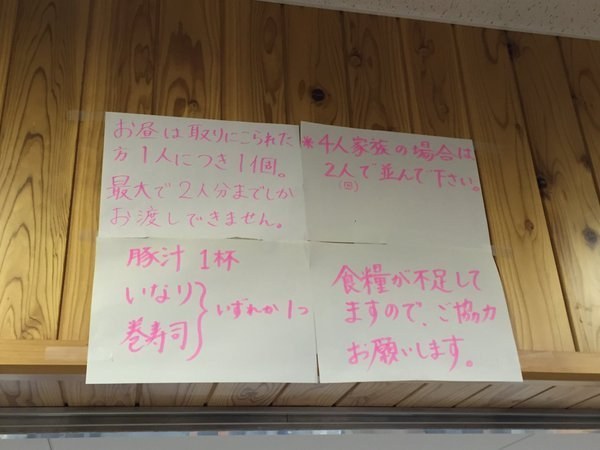 お昼は取りにこられた
方1人につき1個。
最大で2人分までしか
お渡しできません。
※4人家族の場合は
2人で並んで下さい。
(回)
豚汁 1杯
いなり
巻寿司
いずれか1つ
食糧が不足して
ますので、ご協力
お願いします。